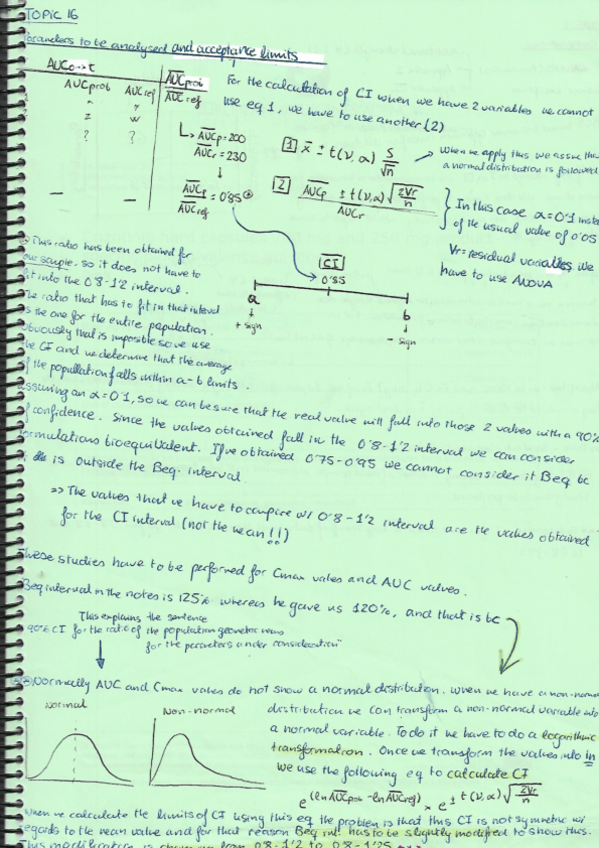 TOPIC 16
Parameters to be analysed and acceptance limits
AUC0→t
AUCprob AUCref
z w
? ?
AUCprob
AUCref
↳ AUCp = 200
AUCr = 230
↓
AUCp = 0'85
AUCref
For the calculation of CI when we have 2 variables we cannot
use eq 1, we have to use another (2)
1 x ± t(ν,α) S/√n
→ When we apply this we assume that
a normal distribution is followed
2 AUCp/AUCr ± t(ν,α) √2Vr/n
In this case α=0'1 inst
of the usual value of 0'05
Vr = residual variables we
have to use ANOVA
CI
0'85
a b
↓ ↓
+ sign - sign
This ratio has been obtained for
our sample, so it does not have to
fit into the 0'8-1'2 interval.
The ratio that has to fit in that interval
is the one for the entire population.
Obviously that is imposible so we use
the CI and we determine that the average
of the population falls within a-b limits.
assuming an α=0'1, so we can be sure that the real value will fall into those 2 values with a 90%
of confidence. Since the values obtained fall in the 0'8-1'2 interval we can consider
formulations bioequivalent. If we obtained 0'75-0'95 we cannot consider it Beq bc
is outside the Beq. interval.
=> The values that we have to compare w/ 0'8-1'2 interval are the values obtained
for the CI interval (not the mean!!)
These studies have to be performed for Cmax values and AUC values.
Beq interval in the notes is 125% whereas he gave us 120%, and that is bc
This explains the sentence
90% CI for the ratio of the population geometric means
for the parameters under consideration"
Normally AUC and Cmax values do not show a normal distribution. When we have a non-normal
distribution we can transform a non-normal variable into
a normal variable. To do it we have to do a logarithmic
transformation. Once we transform the values into ln
we use the following eq to calculate CI
normal Non-normal
e^(ln AUCprob - ln AUCref) × e^± t(ν,α) √2Vr/n
When we calculate the limits of CI using this eq the problem is that this CI is not symmetric w/
regards to the mean value and for that reason Beq int. has to be slightly modified to show this.
This modification is change from 0'8-1'2 to 0'8-1'25